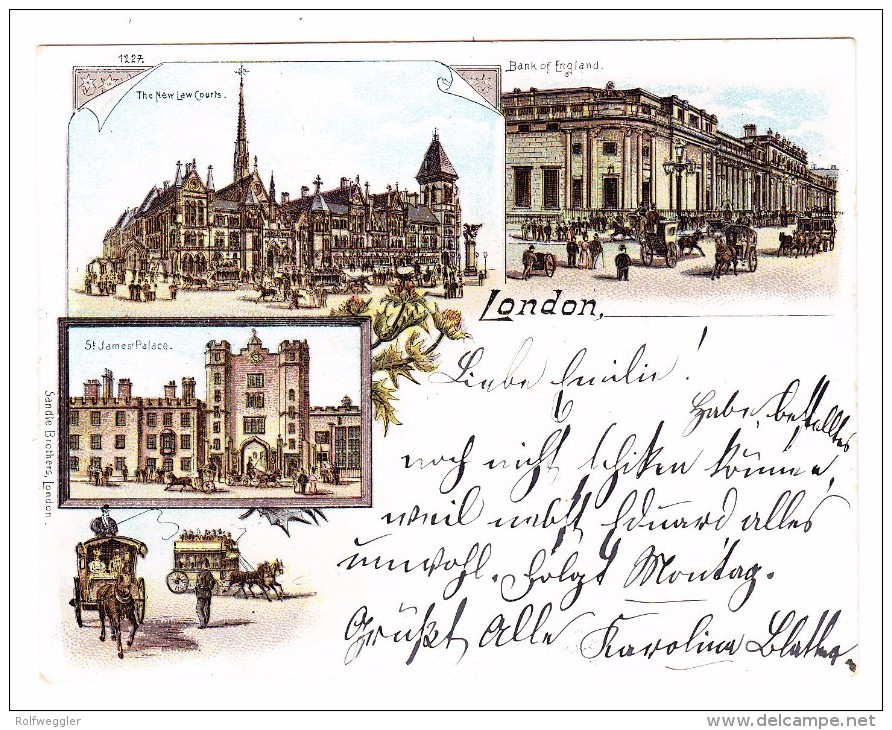 1227.
The New Law Courts.
Bank of England.
London,
St James' Palace.
Sandle Brothers, London.
Liebe Emilie!
Habe bestelltes
noch nicht schiken können,
weil nebst Eduard alles
unwohl. Folgt Montag.
Grüßt Alle Karolina
Rolfweggler
www.delcampe.net